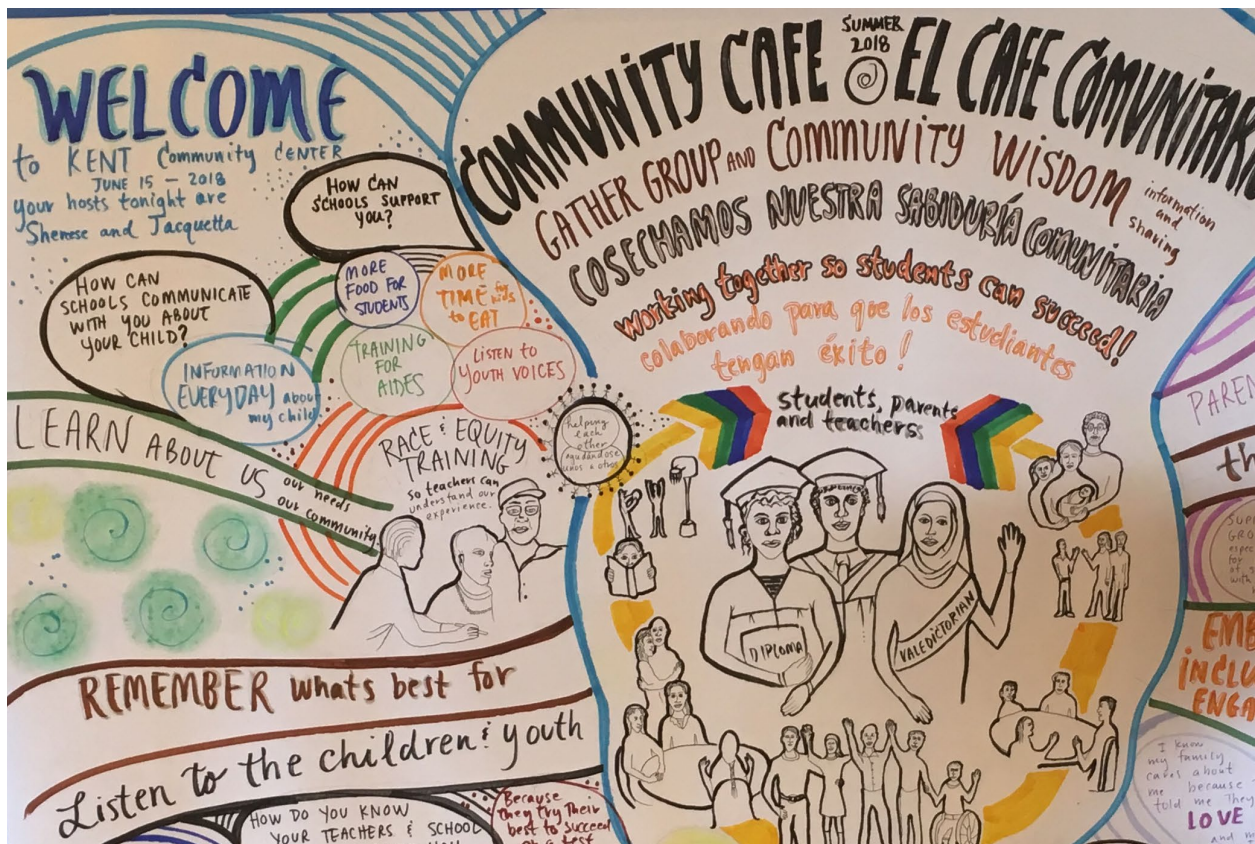 WELCOME
to KENT Community CENTER
JUNE 15 — 2018
your hosts tonight are
Shenese and Jacquetta
HOW CAN
SCHOOLS SUPPORT
YOU?
HOW CAN
SCHOOLS COMMUNICATE
WITH YOU ABOUT
YOUR CHILD?
INFORMATION
EVERYDAY about
my child
MORE
FOOD FOR
STUDENTS
MORE
TIME for kids
to EAT
TRAINING
FOR
AIDES
LISTEN TO
YOUTH VOICES
LEARN ABOUT US our needs
our community
RACE & EQUITY
TRAINING
so teachers can
understand our
experience.
helping
each
other
ayudándose
unos a otros
REMEMBER whats best for
Listen to the children & youth
HOW DO YOU KNOW
YOUR TEACHERS & SCHOOL
Because
they try their
best to succeed
on a test
SUMMER
2018
COMMUNITY CAFE EL CAFE COMUNITAR
GATHER GROUP AND COMMUNITY WISDOM
information
and
sharing
COSECHAMOS NUESTRA SABIDURÍA COMUNITARIA
working together so students can succeed!
colaborando para que los estudiantes
tengan éxito!
students, parents
and teachers
DIPLOMA
VALEDICTORIAN
PAREN
th
SUP
GRO
espec
for
with
EMB
INCLU
ENGA
I know
my family
cares about
me because
told me They
LOVE
and m